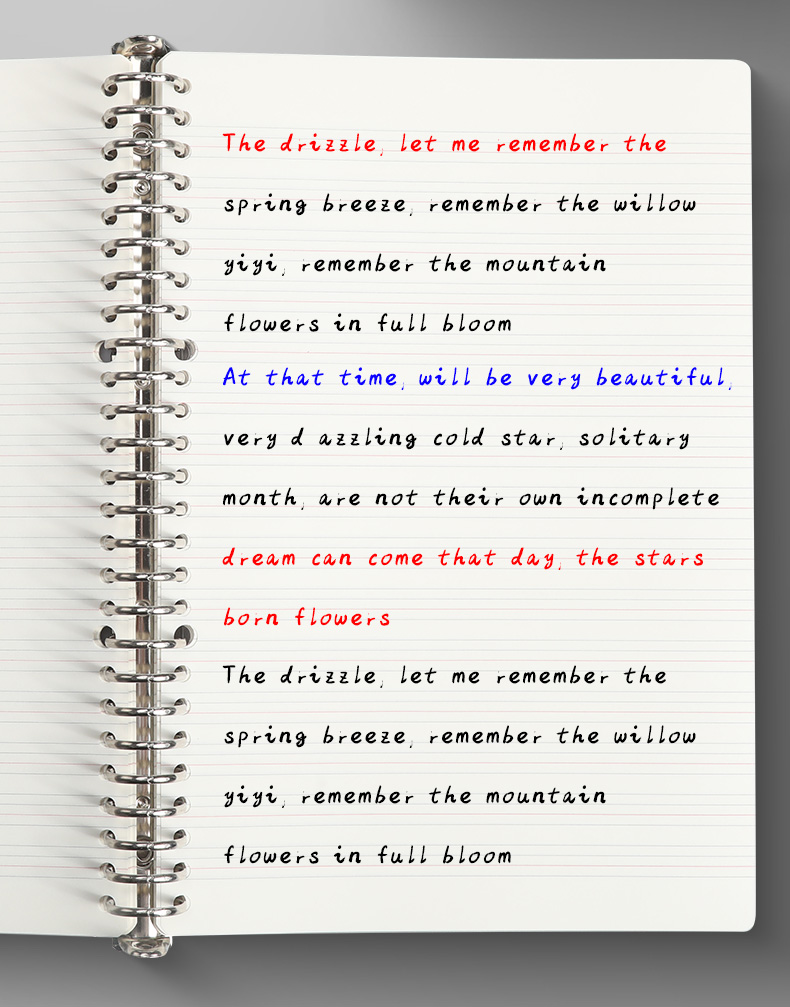 The drizzle, let me remember the
spring breeze, remember the willow
yiyi, remember the mountain
flowers in full bloom
At that time, will be very beautiful,
very d azzling cold star, solitary
month, are not their own incomplete
dream can come that day, the stars
born flowers
The drizzle, let me remember the
spring breeze, remember the willow
yiyi, remember the mountain
flowers in full bloom